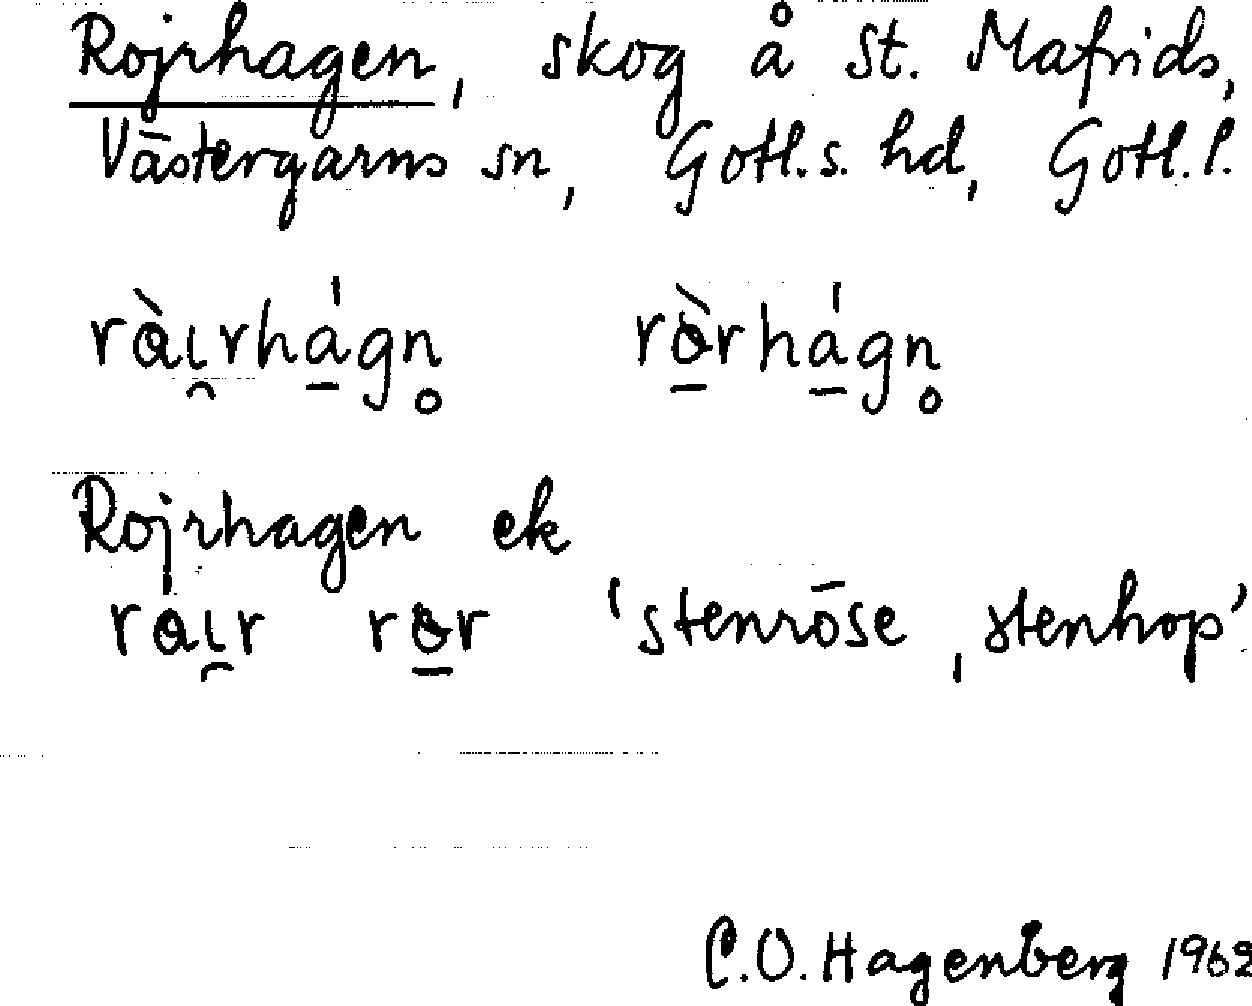 Rojrhagen, skog å St. Mafrids,
Västergarns sn, Gotl. s. hd, Gotl. l.
ràı̯rhágn̥ rò̱rhágn̥
Rojrhagen ek
ráı̯r ro̱r 'stenröse, stenhop'
C.O. Hagenberg 1962